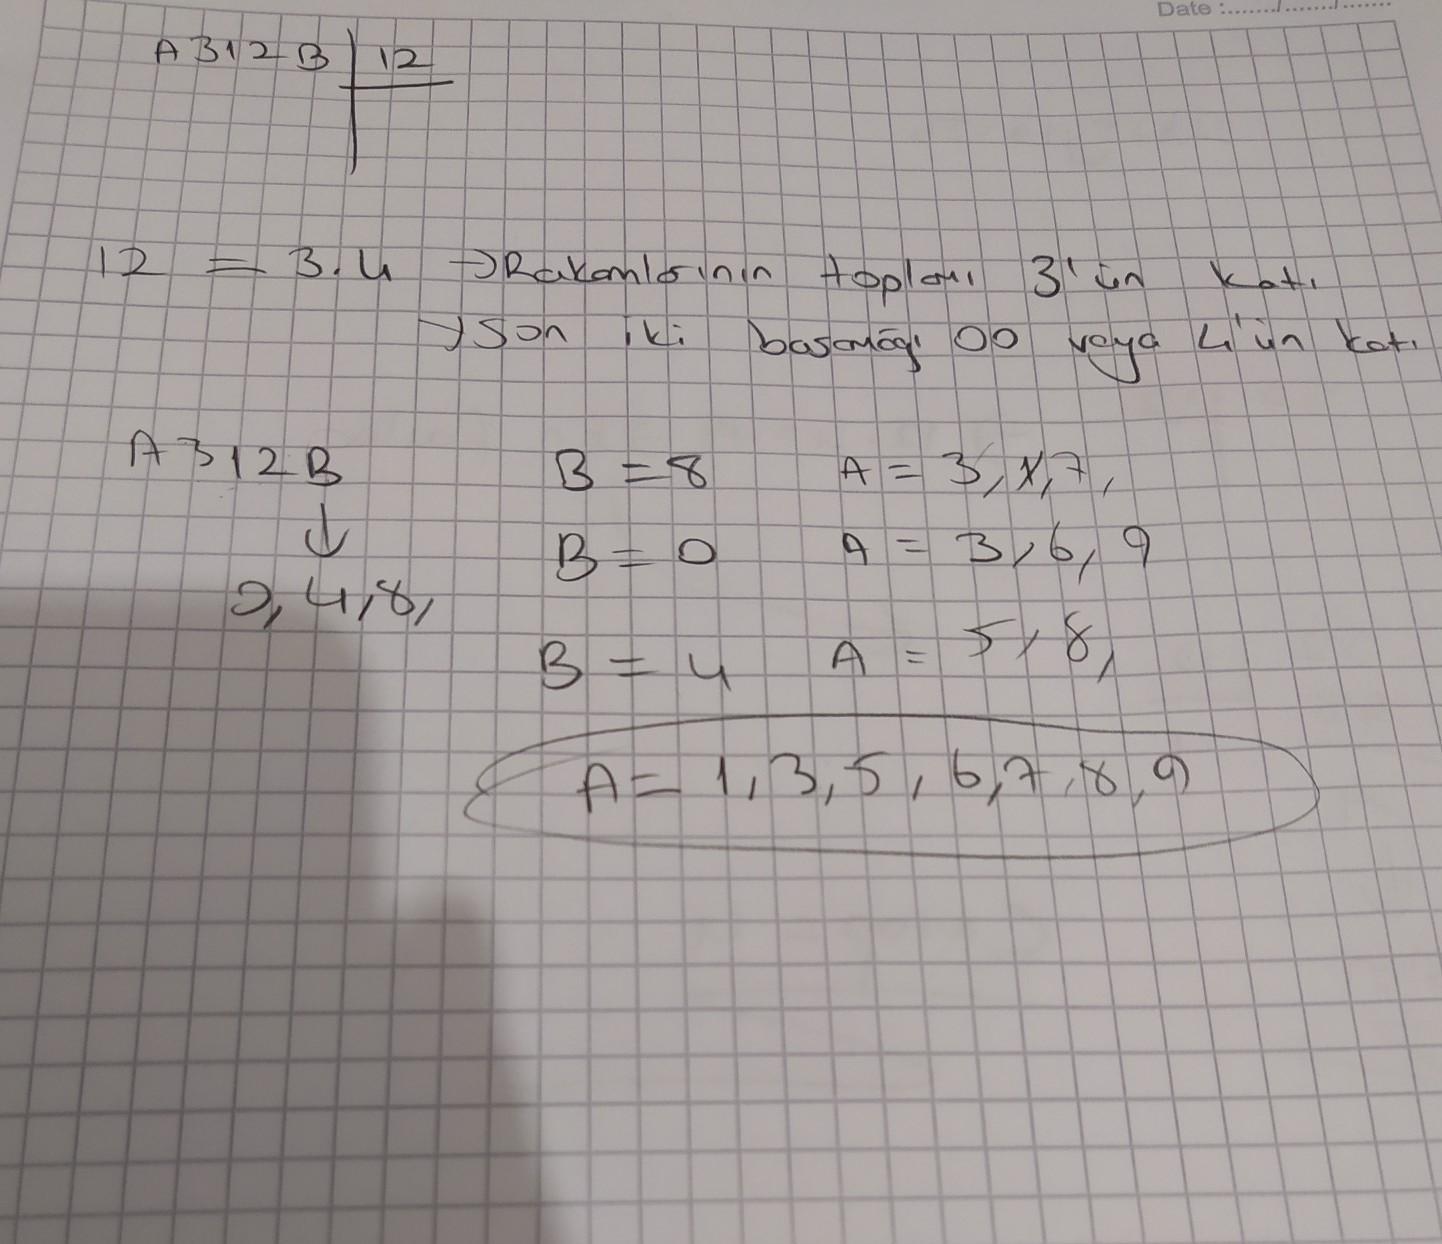 Date :......./......../.......
A312B | 12
12 = 3.4 → Rakamlarının toplamı 3'ün katı
→ Son iki basamağı 00 veya 4'ün katı
A312B
↓
0, 4, 8,
B = 8 A = 3, 1, 7,
B = 0 A = 3, 6, 9
B = 4 A = 5, 8,
A = 1, 3, 5, 6, 7, 8, 9